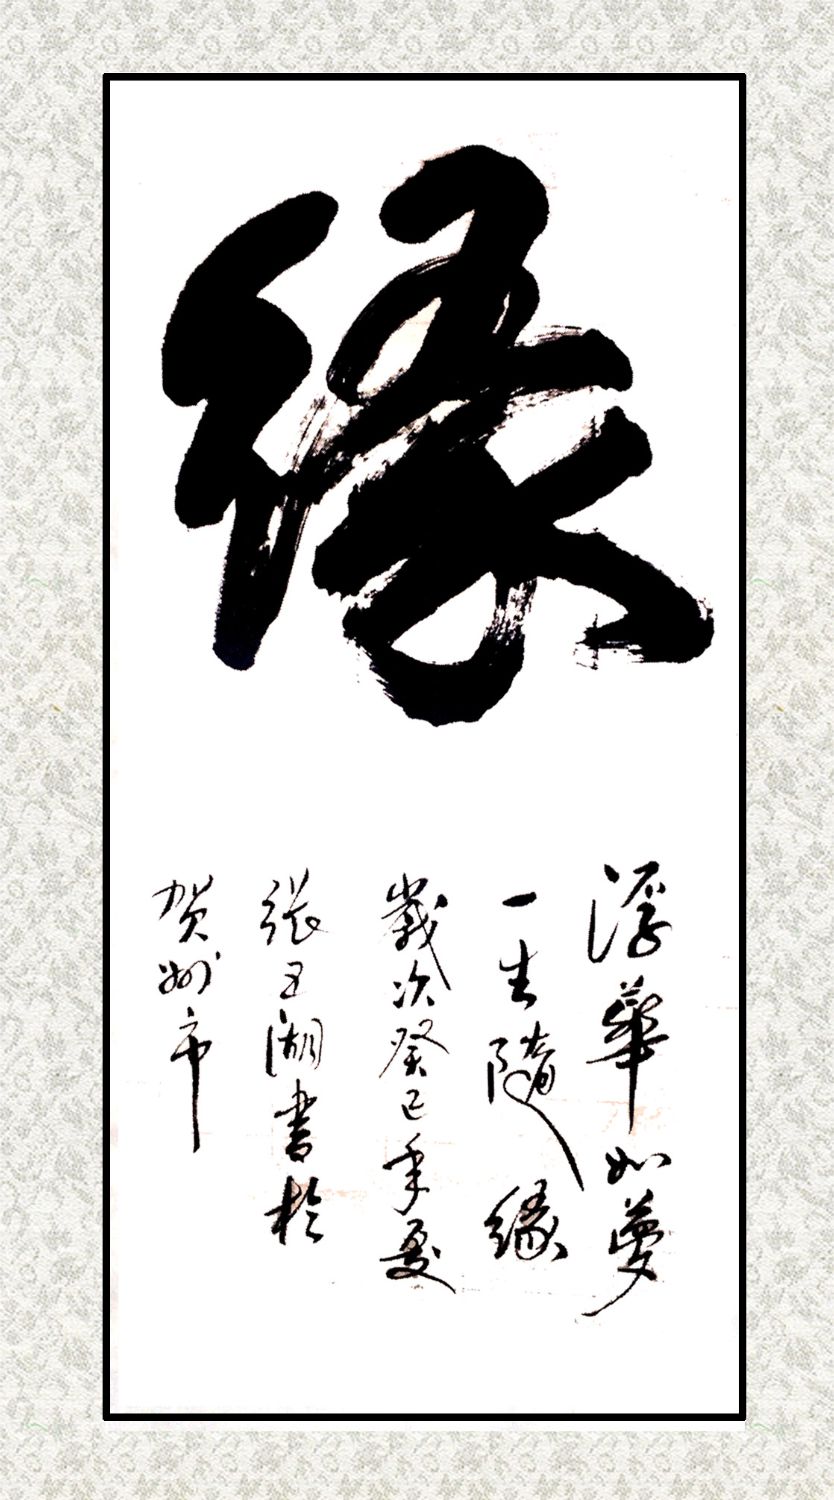 缘
浮華如夢
一生隨緣
歲次癸巳年夏
張玉湖書於
贺州市